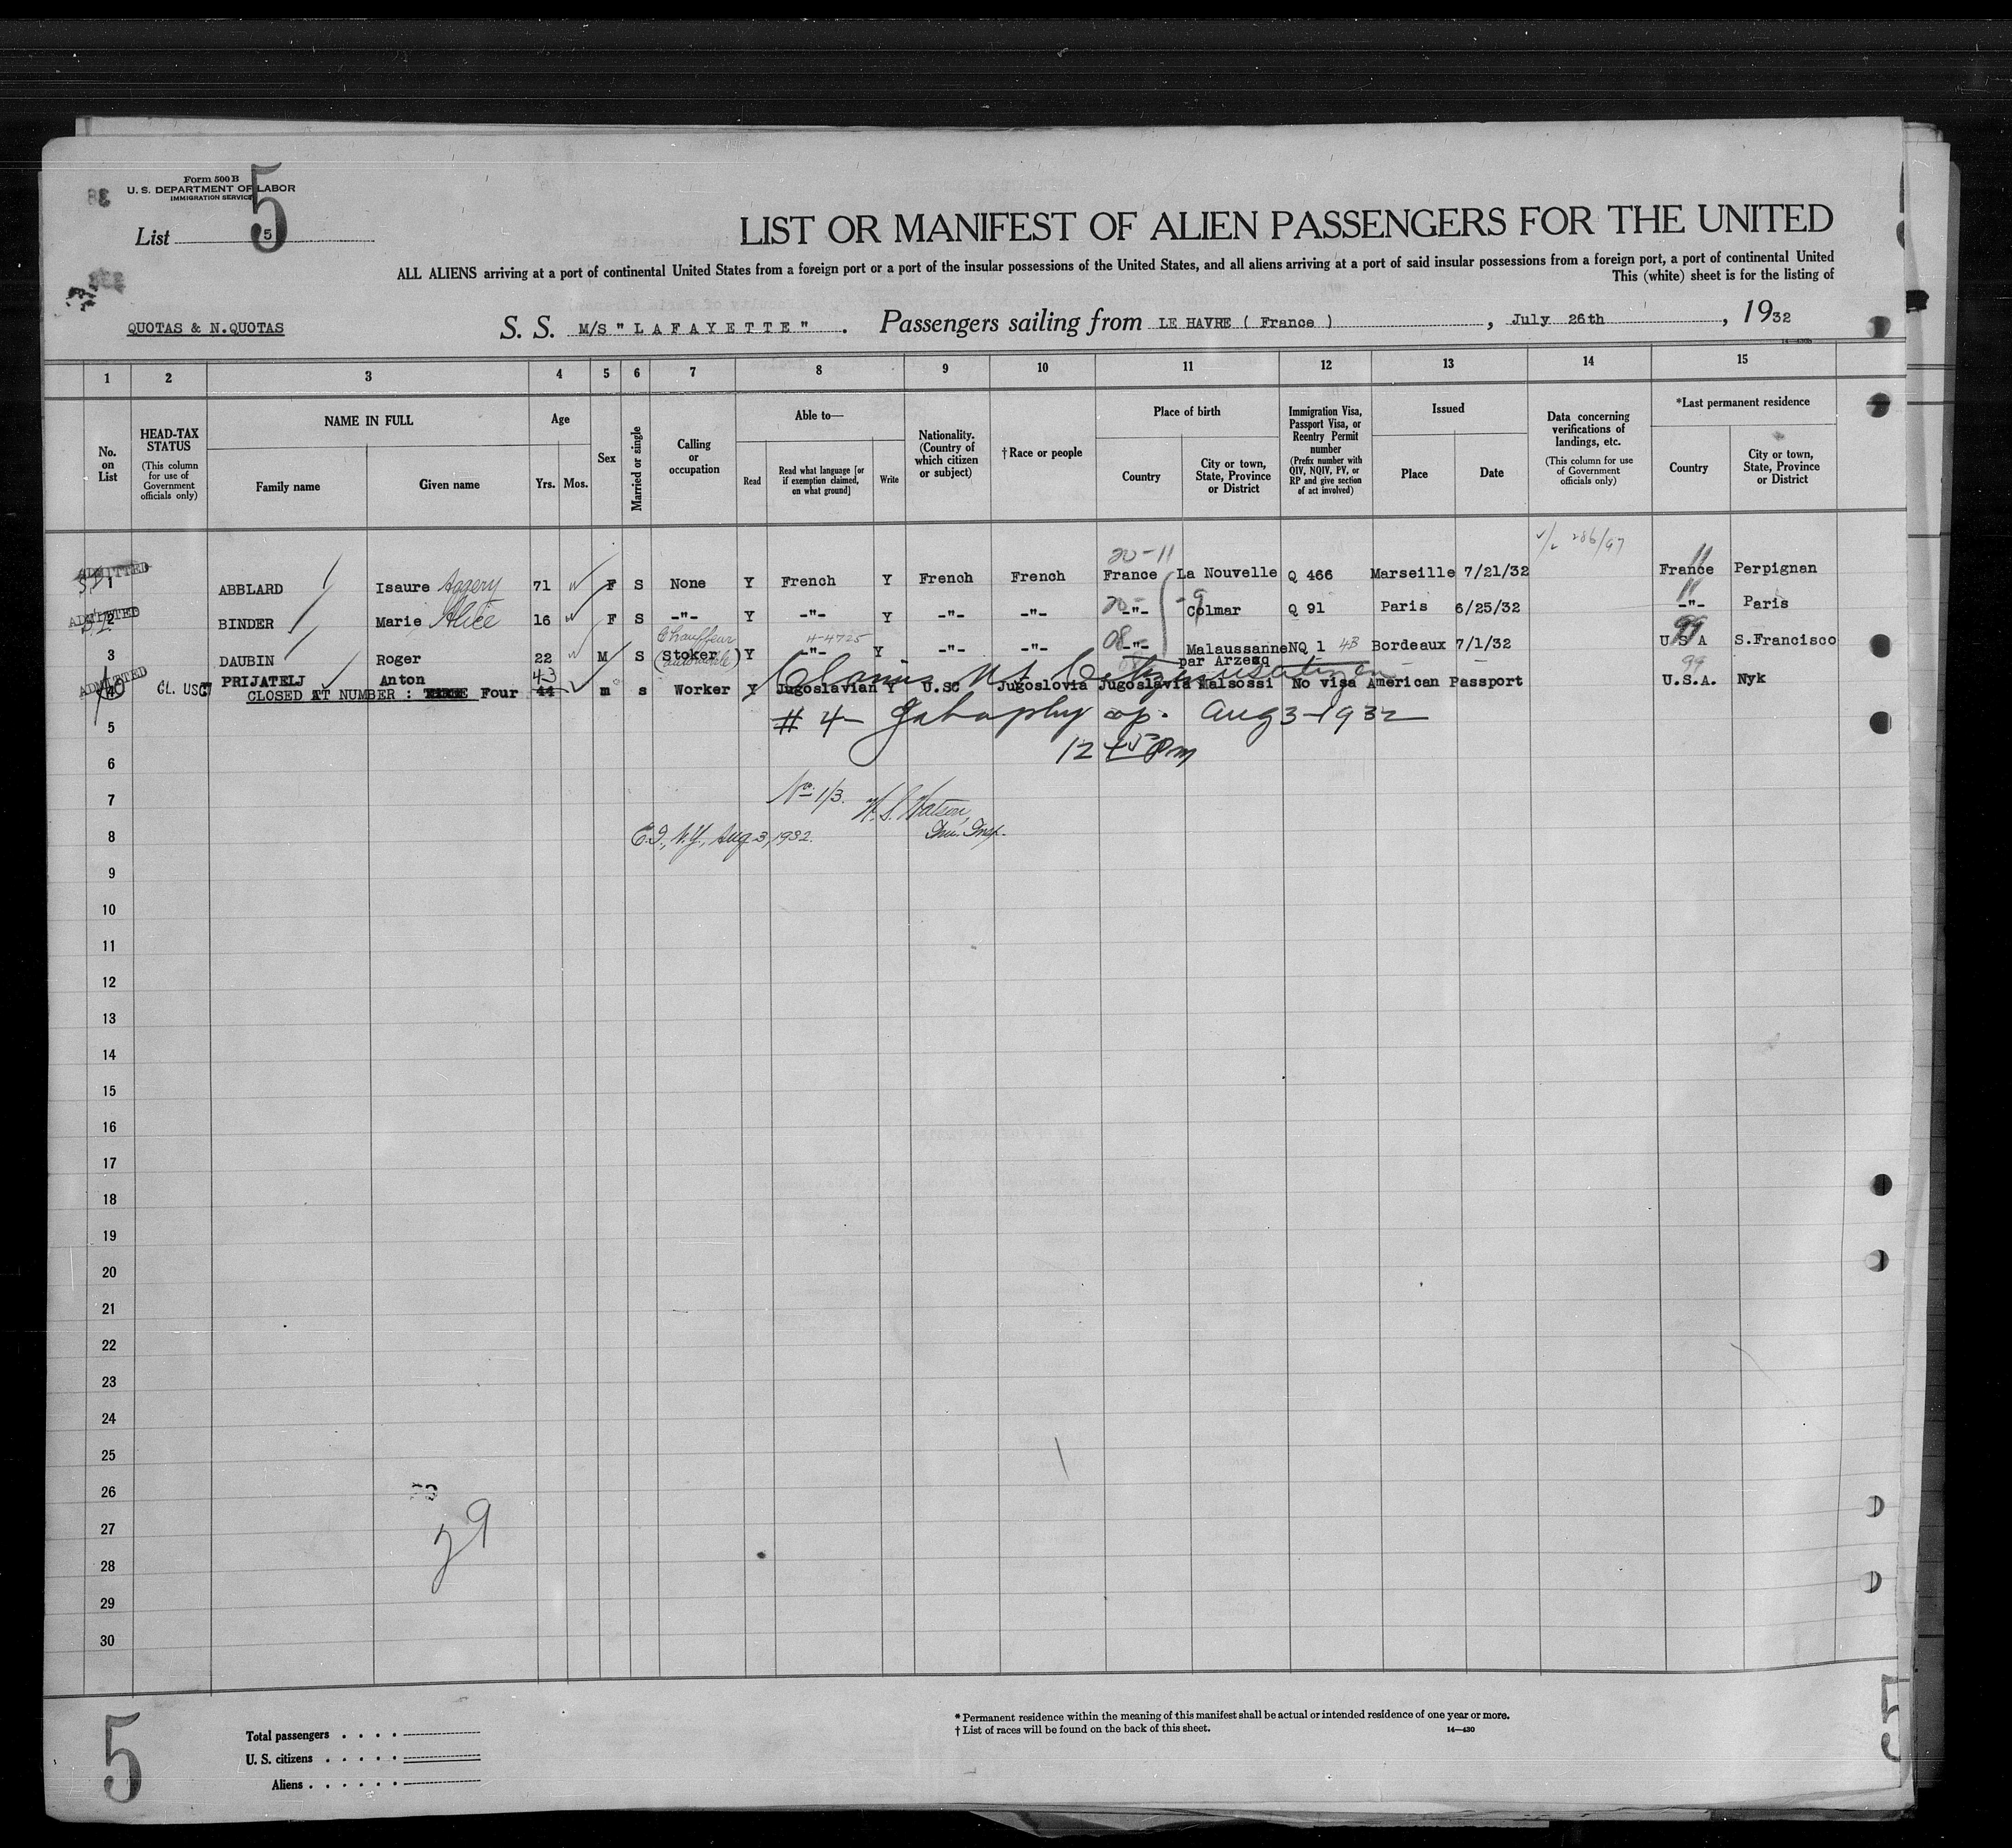 Form 500 B
U. S. DEPARTMENT OF LABOR
IMMIGRATION SERVICE
5
List 5
LIST OR MANIFEST OF ALIEN PASSENGERS FOR THE UNITED
ALL ALIENS arriving at a port of continental United States from a foreign port or a port of the insular possessions of the United States, and all aliens arriving at a port of said insular possessions from a foreign port, a port of continental United
This (white) sheet is for the listing of
QUOTAS & N.QUOTAS
S. S. M/S "LAFAYETTE". Passengers sailing from LE HAVRE ( France ), July 26th, 1932
1 2 3 4 5 6 7 8 9 10 11 12 13 14 15
No. on List
HEAD-TAX STATUS (This column for use of Government officials only)
NAME IN FULL
Family name
Given name
Age
Yrs. Mos.
Sex
Married or single
Calling or occupation
Able to—
Read
Read what language [or if exemption claimed, on what ground]
Write
Nationality. (Country of which citizen or subject)
† Race or people
Place of birth
Country
City or town, State, Province or District
Immigration Visa, Passport Visa, or Reentry Permit number (Prefix number with QIV, NQIV, PV, or RP and give section of act involved)
Issued
Place
Date
Data concerning verifications of landings, etc. (This column for use of Government officials only)
*Last permanent residence
Country
City or town, State, Province or District
20-11
11
ADMITTED
1 ABBLARD Isaure 71 F S None Y French Y French French France La Nouvelle Q 466 Marseille 7/21/32 France Perpignan
ADMITTED
2 BINDER Marie Alice 16 F S -"- Y -"- Y -"- -"- -"- Colmar Q 91 Paris 6/25/32 -"- Paris
Chauffeur 4-4725
3 DAUBIN Roger 22 M S Stoker (automobile) Y -"- Y -"- -"- 08 -"- Malaussanne par Arzacq NQ 1 4B Bordeaux 7/1/32 U S A S.Francisco
ADMITTED
43 Claims U.S. Citizenship 99
4 CL. USC PRIJATELJ Anton 44 m s Worker Y Jugoslavian Y U.SC Jugoslovia Jugoslavia Malsossi No visa American Passport U.S.A. Nyk
CLOSED AT NUMBER : Four
5 # 4 - Aug 3-1932
6 12 45 Pm
7 No 1/3. W. S. Watson,
8 E.I., N.Y., Aug 3, 1932. Imm. Insp.
9
10
11
12
13
14
15
16
17
18
19
20
21
22
23
24
25
26
27
28
29
30
29
5
Total passengers
U. S. citizens
Aliens
* Permanent residence within the meaning of this manifest shall be actual or intended residence of one year or more.
† List of races will be found on the back of this sheet. 14—430
5